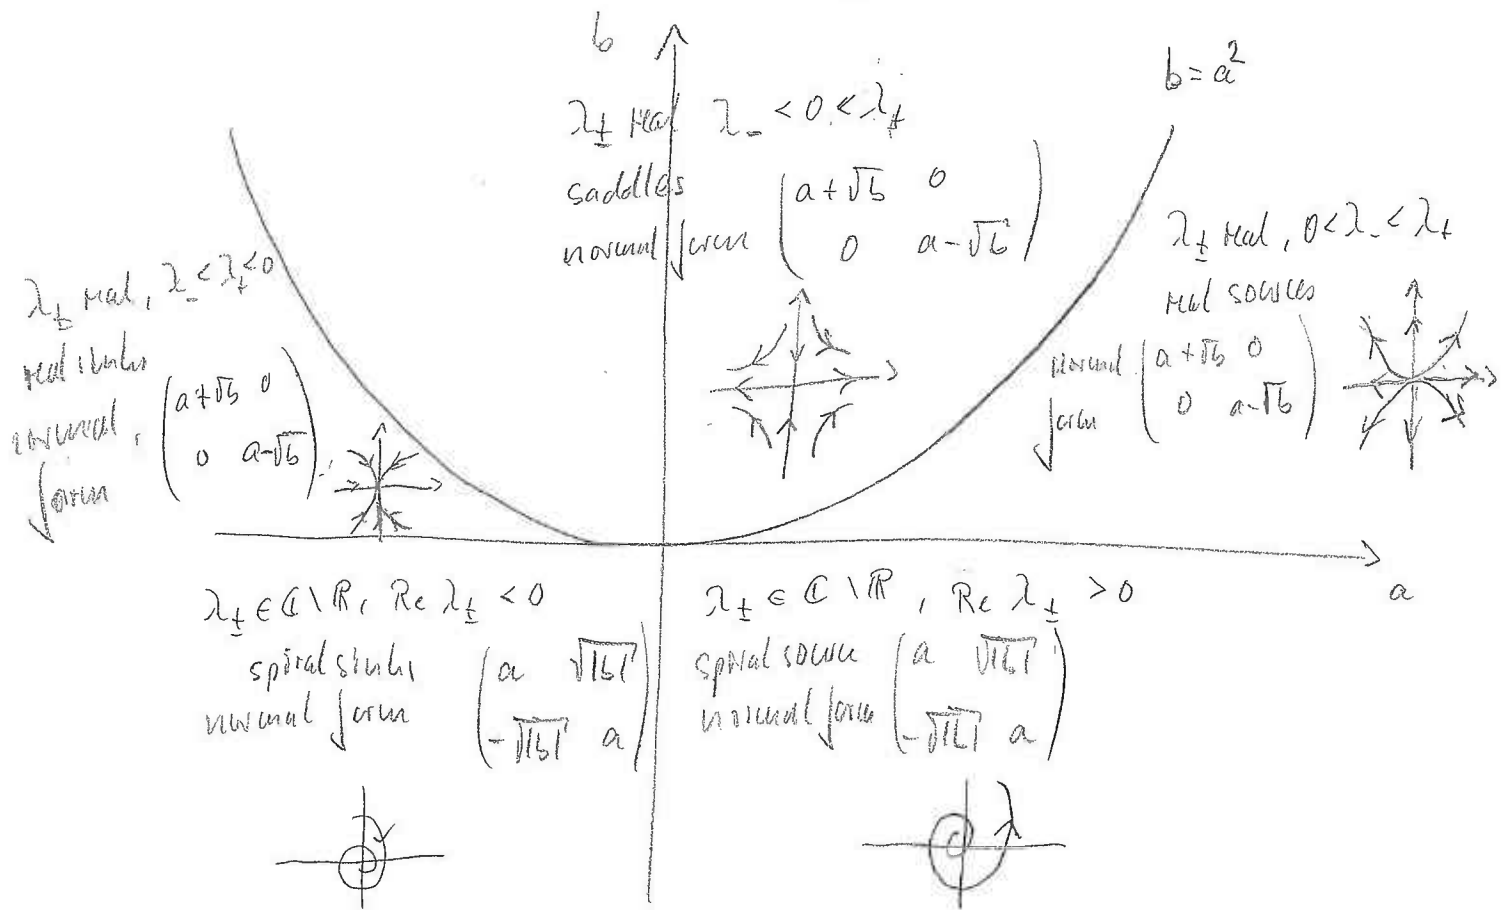 b
b = a²
λ± real λ₋ < 0 < λ₊
saddles
normal form
( a+√b 0
0 a-√b )
λ± real, 0 < λ₋ < λ₊
real sources
normal form
( a+√b 0
0 a-√b )
λ± real, λ₋ < λ₊ < 0
real sinks
normal form
( a+√b 0
0 a-√b )
a
λ± ∈ ℂ \ ℝ, Re λ± < 0
spiral sinks
normal form
( a √|b|
-√|b| a )
λ± ∈ ℂ \ ℝ, Re λ± > 0
spiral source
normal form
( a √|b|
-√|b| a )